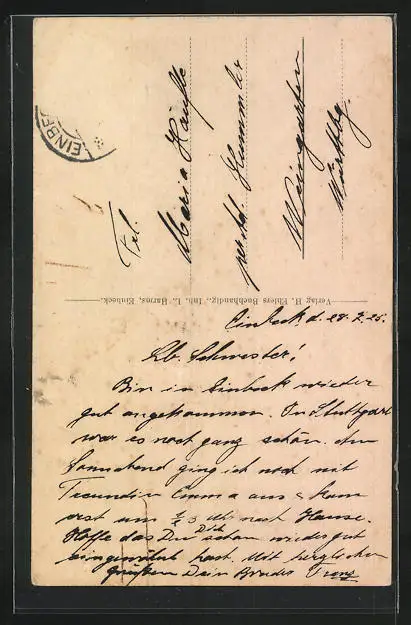 EINBE
Frl.
Maria Häufle
per Ad. Hummler
Weingarten
Württbg.
Verlag H. Ehlers Buchhandlg., Inh. L. Harms, Einbeck.
Einbeck, d. 28. 25.
Lb. Schwester!
Bin in Einbeck wieder
gut angekommen. In Stuttgart
war es noch ganz schön. Am
Sonnabend ging ich noch mit
Freundin Emma aus & kam
erst um Uhr nach Hause.
Hoffe das Du Dich schon wieder gut
hast. Mit herzlichen
Grüßen Dein Bruder Franz